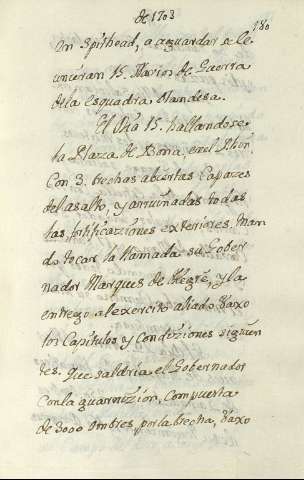 de 1703
180
En Spithead, a aguardar se le
uncieran 15. Navios de Guerra
de la esquadra Olandesa.
El Dia 15. hallandose
la Plaza de Bona, en el Rhin
Con 3. brechas abiertas capazes
del asalto, y arruinadas todas
las fortificaziones exteriores. Man
do tocar la llamada su Gober
nador Marques de Alegre, y la
entrego al exercito aliado vaxo
los Capitulos y Condiziones siguien
tes. que saldria el Gobernador
con la guarnizion, compuesta
de 3000 ombres, por la brecha, vaxo